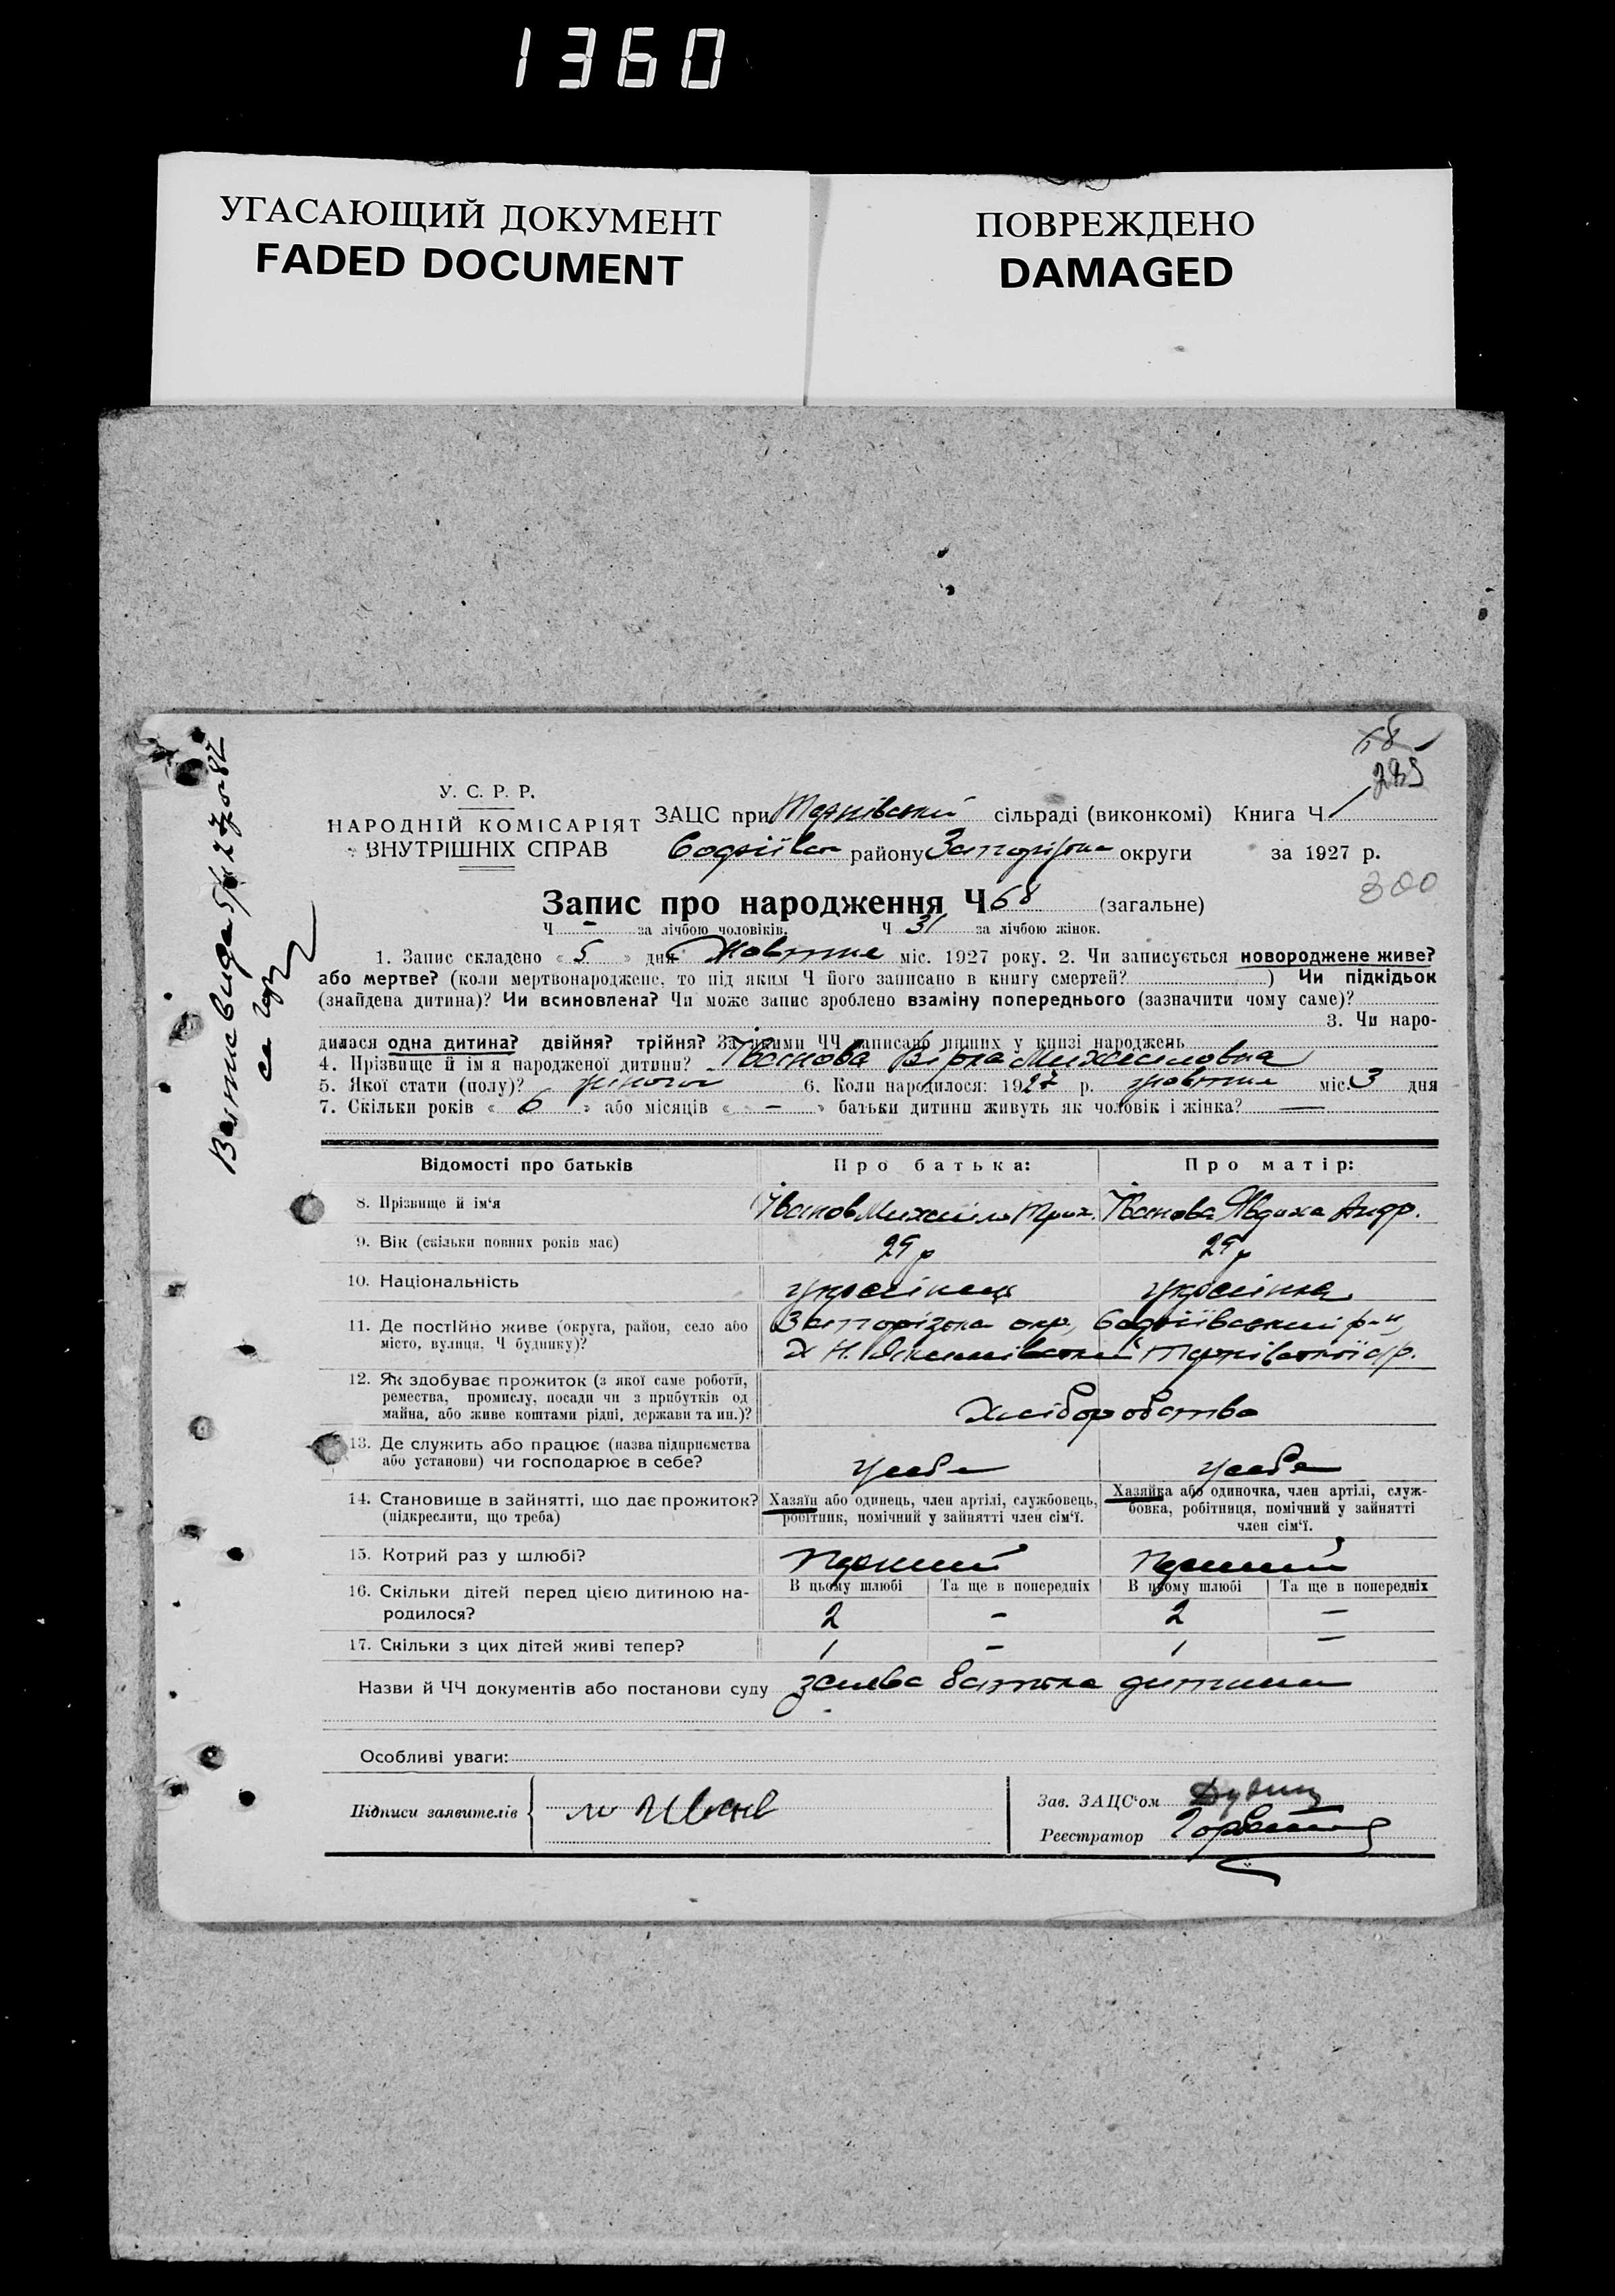 1360
УГАСАЮЩИЙ ДОКУМЕНТ
FADED DOCUMENT
ПОВРЕЖДЕНО
DAMAGED
68
285
У. С. Р. Р.
НАРОДНІЙ КОМІСАРІЯТ
ВНУТРІШНІХ СПРАВ
ЗАЦС при сільраді (виконкомі) Книга Ч 1
району округи за 1927 р.
300
Запис про народження Ч 68 (загальне)
Ч - за лічбою чоловіків. Ч 31 за лічбою жінок.
1. Запис складено « 5 » дня Жовтня міс. 1927 року. 2. Чи записується новороджене живе?
або мертве? (коли мертвонароджене, то під яким Ч його записано в книгу смертей? ) Чи підкідьок
(знайдена дитина)? Чи всиновлена? Чи може запис зроблено взаміну попереднього (зазначити чому саме)?
3. Чи наро-
дилася одна дитина? двійня? трійня? За якими ЧЧ записано инших у книзі народжень
4. Прізвище й ім'я народженої дитини? Іванова Вірка Михайловна
5. Якої стати (полу)? жіночої 6. Коли народилося: 1927 р. жовтня міс. 3 дня
7. Скільки років « 6 » або місяців « - » батьки дитини живуть як чоловік і жінка? —
Відомості про батьків
Про батька:
Про матір:
8. Прізвище й ім'я
Іванов Михайло Трох.
Іванова Явдоха Андр.
9. Вік (скільки повних років має)
29 р
29 р
10. Національність
українець
українка
11. Де постійно живе (округа, район, село або
місто, вулиця, Ч будинку)?
Запорізька окр., р-н,
х Н.
12. Як здобуває прожиток (з якої саме роботи,
ремества, промислу, посади чи з прибутків од
майна, або живе коштами рідні, держави та ин.)?
Хліборобство
13. Де служить або працює (назва підприємства
або установи) чи господарює в себе?
у себе
у себе
14. Становище в зайнятті, що дає прожиток?
(підкреслити, що треба)
Хазяїн або одинець, член артілі, службовець,
робітник, помічний у зайнятті член сім'ї.
Хазяйка або одиночка, член артілі, служ-
бовка, робітниця, помічний у зайнятті
член сім'ї.
15. Котрий раз у шлюбі?
Перший
Перший
16. Скільки дітей перед цією дитиною на-
родилося?
В цьому шлюбі
Та ще в попередніх
В цьому шлюбі
Та ще в попередніх
2 - 2 -
17. Скільки з цих дітей живі тепер?
1 - 1 -
Назви й ЧЧ документів або постанови суду заява батька дитини
Особливі уваги:
Підписи заявителів
Зав. ЗАЦС'ом
Реєстратор